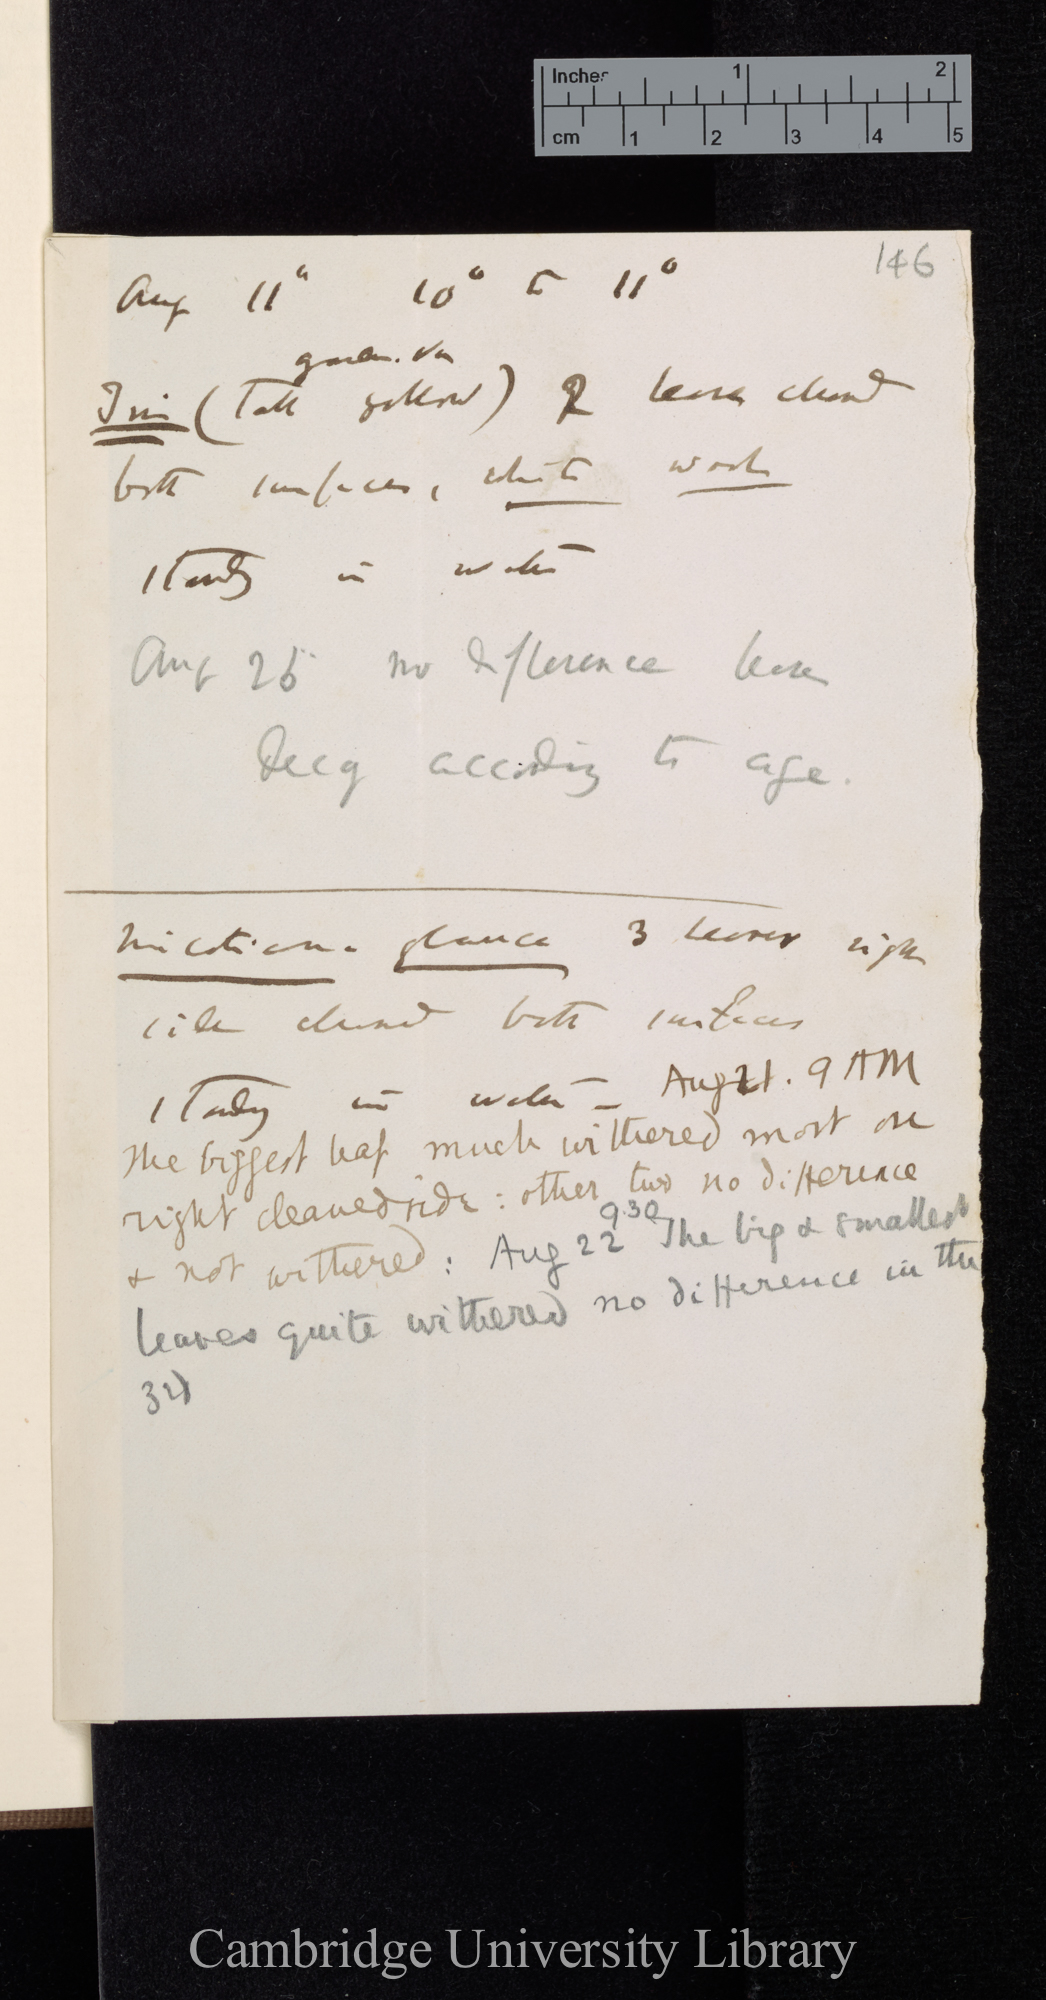 Inches 1 2
cm 1 2 3 4 5
146
Aug 11° 10° to 11°
garden. var
Iris (Tall yellow) 2 leaves cleaned
both surfaces, white wash
standing in water
Aug 25 no difference leaves
decay according to age.
Nicotiana glauca 3 leaves right
side cleaned both surfaces
standing in water – Aug 21. 9 AM
The biggest leaf much withered most on
right cleaned side: other two no difference
9.30
& not withered: Aug 22 The big & smallest
leaves quite withered no difference in the
Cambridge University Library